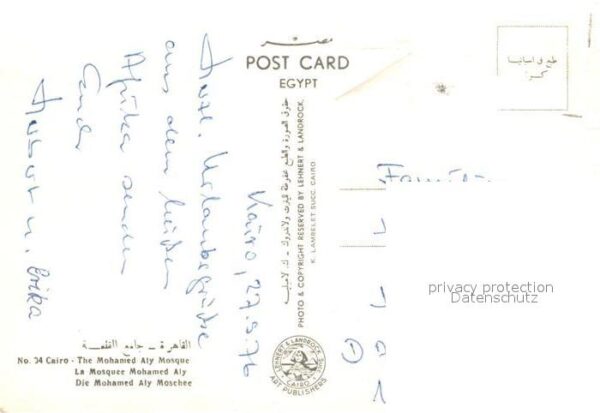 مصر
POST CARD
EGYPT
طبع في اسبانيا
Kairo, 27.9.76
Herzl. Urlaubsgrüße
aus dem heißen
Afrika senden
Euch
Herbert u. Erika
Familie
حقوق الصورة والطبع محفوظة لليزت ولاندروك - ك. لامبليه
PHOTO & COPYRIGHT RESERVED BY LEHNERT & LANDROCK,
K. LAMBELET SUCC. CAIRO
privacy protection
Datenschutz
القاهرة - جامع القلعة
No. 34 Cairo - The Mohamed Aly Mosque
La Mosquee Mohamed Aly
Die Mohamed Aly Moschee
LEHNERT & LANDROCK
CAIRO
ART PUBLISHERS